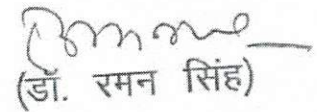 (डॉ. रमन सिंह)